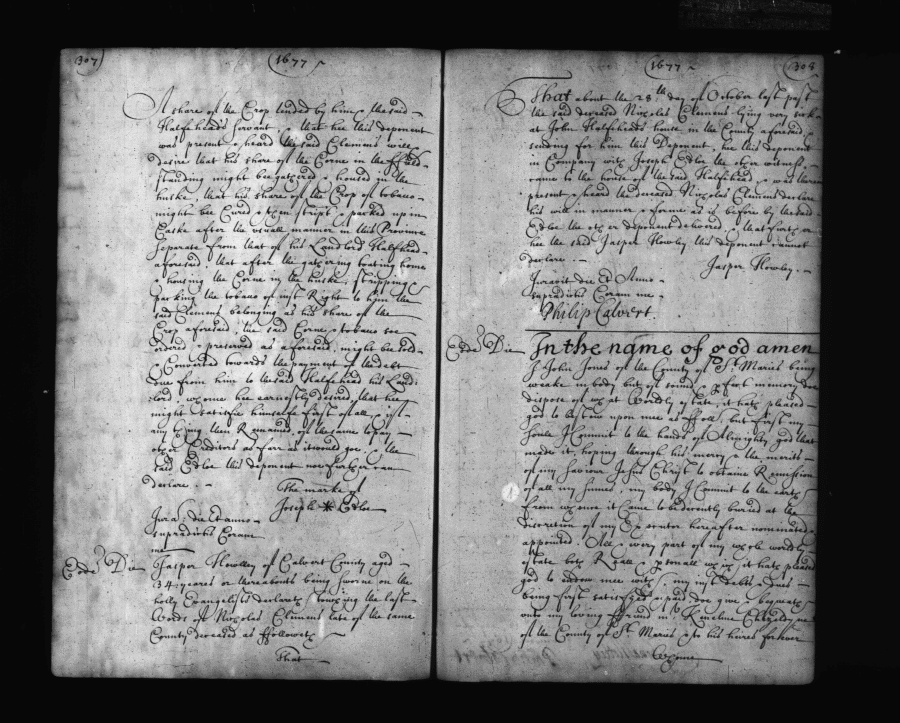 307
1677
A share of the Crop tended by him & the said
Halfeheads servant, that hee this deponent
was present & heard the said Clement will &
desire that his share of the Corne in the ffield
standing might be gathered & housed in the
huske, that his share of the Crop of tobacco
might bee Cured & then stript & packed up in
Caske after the usuall manner in this Province
Separate from that of his Landlord Halfehead
aforesaid that after the gathering bearing home
& housing the Corne in the huske, stripping &
packing the tobacco of iust Right to him the
said Clement belonging as his share of the
Crop aforesaid, the said Corne & tobacco soe
ordered & preserved as aforesaid, might bee sold
& Converted towards the payment of the debt
due from him to the said Halfehead his Land:
:lord, whome hee earnestly desired that hee
might satisfie himselfe first of all, & if
any thing then Remained of the same to pay
other Creditors as farr as it would goe, & the
said Edloe this deponent noe further can
declare.
The marke of
Joseph * Edloe
Jurat: die et anno
supradictis Coram
me
Eodē Die
Jasper Howlley of Calvert County aged
34 yeares or thereabouts being sworne on the
holly Evangelists declareth touching the last
Words of Nicholas Clement late of the same
County deceased as ffolloweth
That
1677
308
That about the 28th day of October last past
the said deceased Nicolas Clement lying very sick
at John Halfeheads house in the County aforesaid &
sending for him this Deponent, hee this deponent
in Company with Joseph Edloe the other witness
came to the house of the said Halfehead, & was there
present & heard the deceased Nicholas Clement declare
his will in manner & forme as is before by the said
Edloe the other deponent delivered, that further
hee the said Jasper Howley this deponent cannot
declare.
Jasper Howley.
Juravit die et Anno
supradictis Coram me
Philip Calvert.
Eodē Die
In the name of god amen
I John Jones of the County of St Maries being
weake in body but of sound & perfect memory doe
dispose of what Wordly estate it hath pleased
god to bestow upon mee as ffoll: but first my
soule I Commit to the hands of Almighty god that
made it, hoping through his mercy & the meritts
of my saviour Jesus Christ to obtaine Remission
of all my sinnes, my body I Commit to the earth
from whence it Came to be decently buried at the
discretion of my Executor hereafter nominated &
appointed. All & every part of my whole worldly
estate both Reall & personall which it hath pleased
god to endow mee with, my iust debts & dues
being first satisfied & paid doe give & bequeath
unto my loving ffreind Mr Keneline Cheseldyne
of the County of St Maries & to his heires forever
Whome